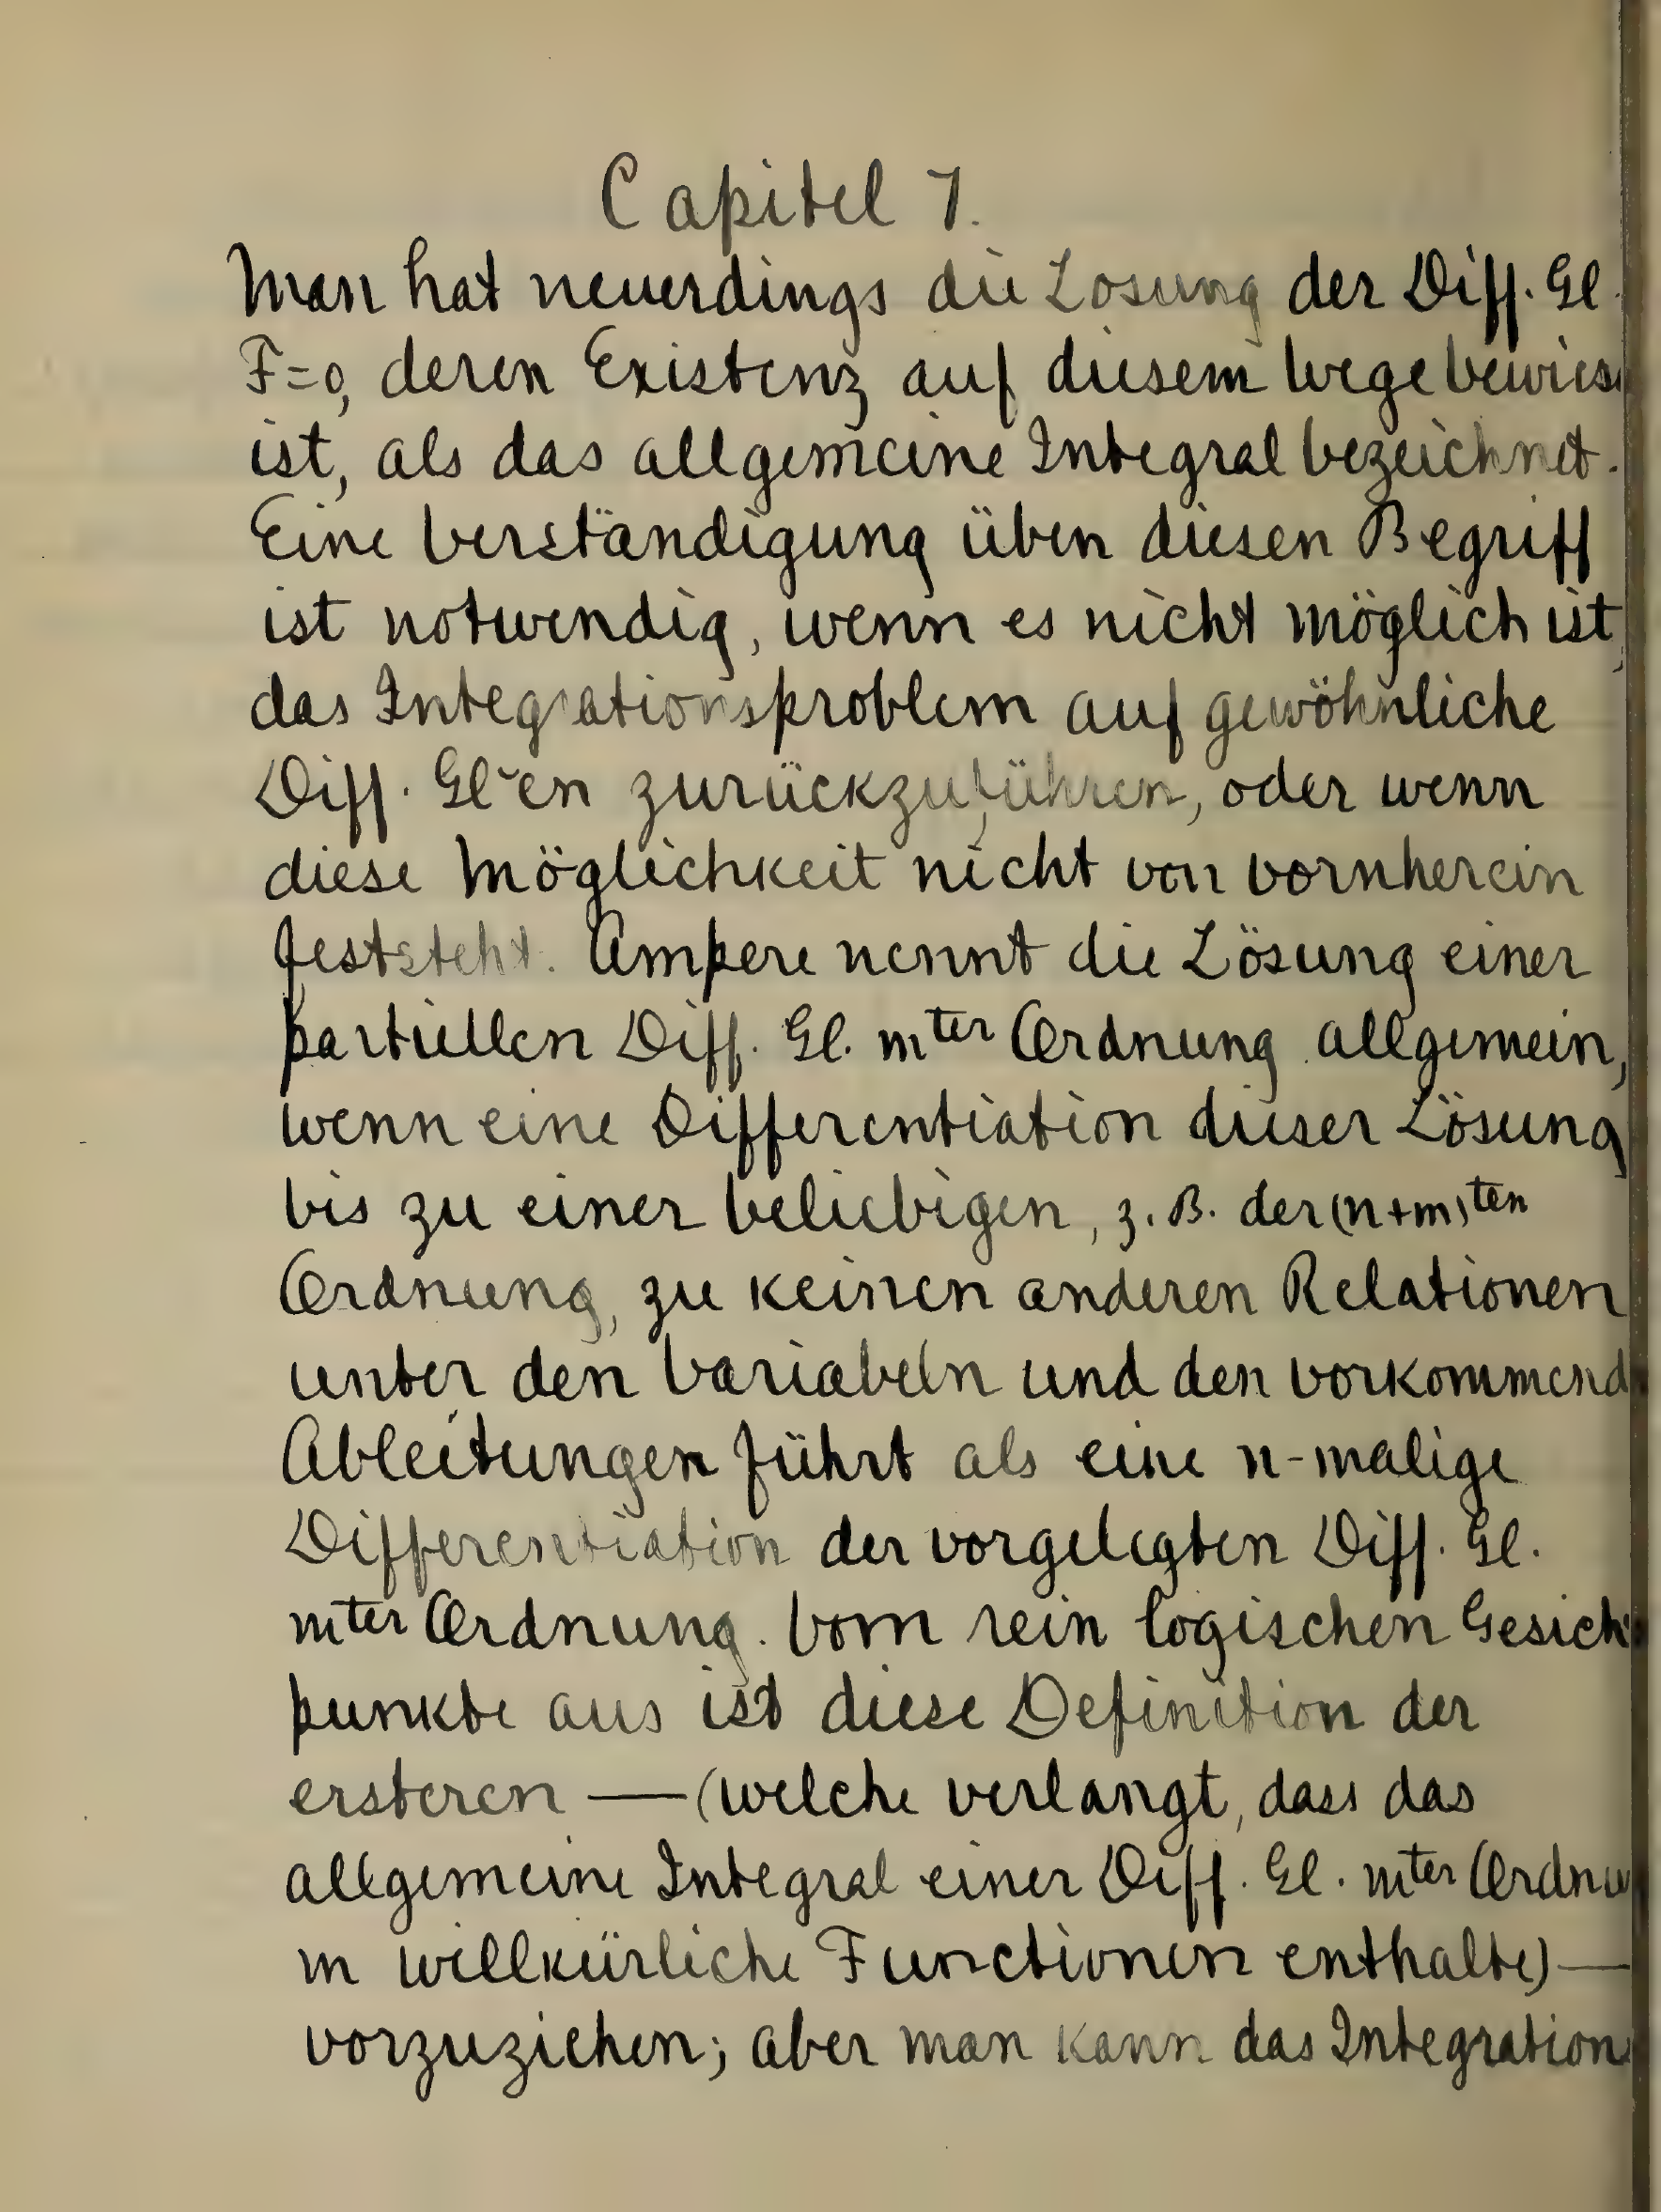 Capitel 7.
Man hat neuerdings die Losung der Diff. Gl.
F=0, deren Existenz auf diesem Wege bewies
ist, als das allgemeine Integral bezeichnet.
Eine Verständigung über diesen Begriff
ist notwendig, wenn es nicht möglich ist,
das Integrationsproblem auf gewöhnliche
Diff. Gl~en zurückzuführen, oder wenn
diese Möglichkeit nicht von vornherein
feststeht. Ampere nennt die Lösung einer
partiellen Diff. Gl. mter Ordnung allgemein,
wenn eine Differentiation dieser Lösung
bis zu einer beliebigen, z. B. der (n+m)ten
Ordnung, zu keinen anderen Relationen
unter den Variabeln und den vorkommend
Ableitungen führt als eine n-malige
Differentiation der vorgelegten Diff. Gl.
mter Ordnung. Vom rein logischen Gesich
punkte aus ist diese Definition der
ersteren — (welche verlangt, dass das
allgemeine Integral einer Diff. Gl. mter Ordnu
m willkürliche Functionen enthalte) —
vorzuziehen; aber man kann das Integration